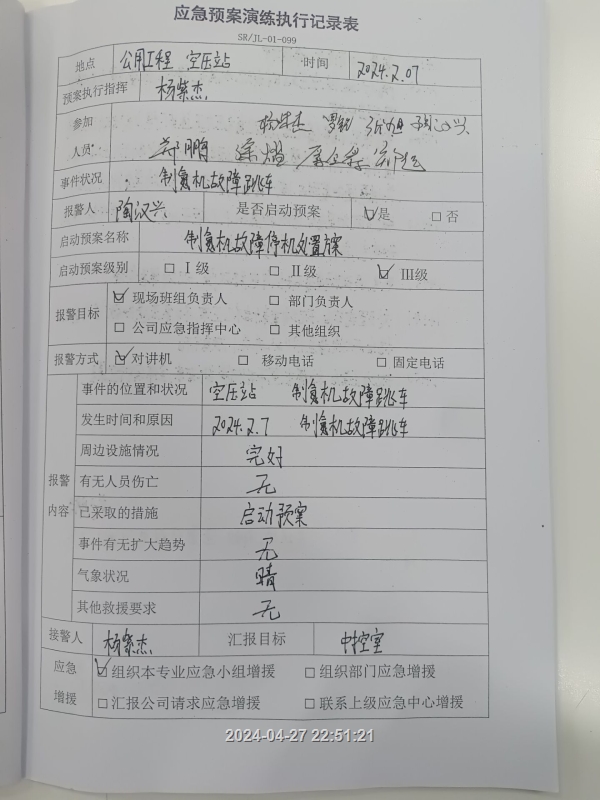 应急预案演练执行记录表
SR/JL-01-099
地点 公用工程 空压站 时间 2024.2.07
预案执行指挥 杨紫杰
参加
人员
事件状况 制氮机故障跳车
报警人 陶汉兴 是否启动预案 ☑是 □否
启动预案名称 制氮机故障停机处置方案
启动预案级别 □Ⅰ级 □Ⅱ级 ☑Ⅲ级
报警目标 ☑现场班组负责人 □部门负责人
□公司应急指挥中心 □其他组织
报警方式 ☑对讲机 □移动电话 □固定电话
事件的位置和状况 空压站 制氮机故障跳车
发生时间和原因 2024.2.7 制氮机故障跳车
周边设施情况 完好
报警 有无人员伤亡 无
内容 已采取的措施 启动预案
事件有无扩大趋势 无
气象状况 晴
其他救援要求 无
接警人 杨紫杰 汇报目标 中控室
应急 ☑组织本专业应急小组增援 □组织部门应急增援
增援 □汇报公司请求应急增援 □联系上级应急中心增援
2024-04-27 22:51:21